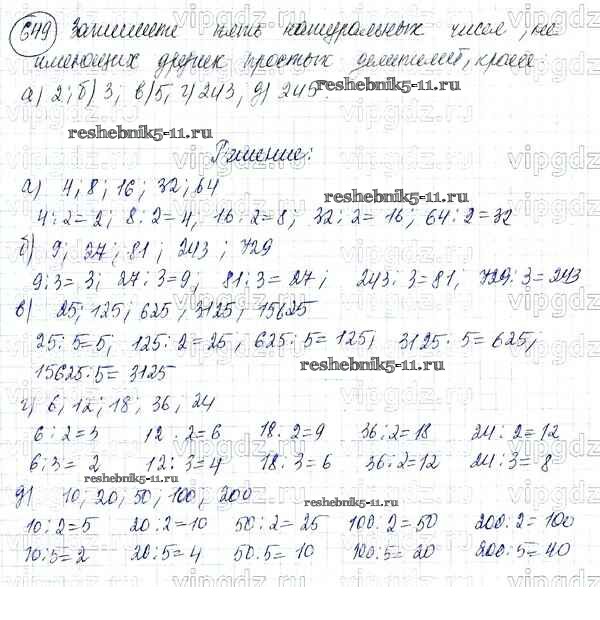 649 Запишите пять натуральных чисел, не
имеющих других простых делителей, кроме:
а) 2; б) 3; в) 5; г) 2 и 3; д) 2 и 5.
reshebnik5-11.ru
Решение:
reshebnik5-11.ru
а) 4; 8; 16; 32; 64
4:2=2; 8:2=4, 16:2=8; 32:2=16; 64:2=32
б) 9; 27; 81; 243; 729
9:3=3; 27:3=9; 81:3=27; 243:3=81; 729:3=243
в) 25; 125; 625; 3125; 15625
25:5=5; 125:2=25, 625:5=125; 3125:5=625;
15625:5=3125
reshebnik5-11.ru
г) 6; 12; 18; 36; 24
6:2=3 12:2=6 18:2=9 36:2=18 24:2=12
6:3=2 12:3=4 18:3=6 36:2=12 24:3=8
reshebnik5-11.ru
д) 10; 20; 50; 100; 200
reshebnik5-11.ru
10:2=5 20:2=10 50:2=25 100:2=50 200:2=100
10:5=2 20:5=4 50:5=10 100:5=20 200:5=40
vipgdz.ru